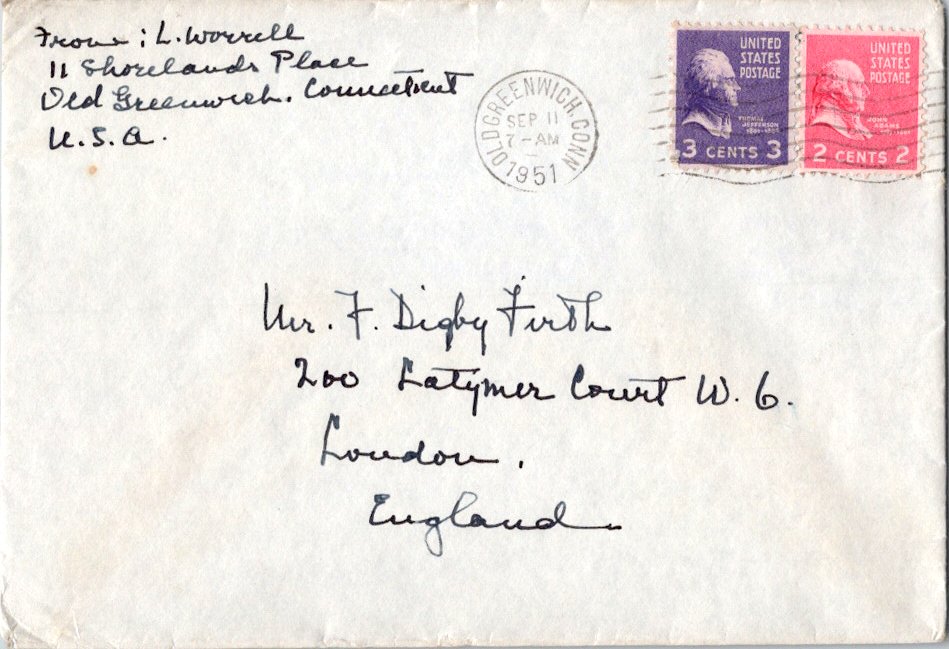 From: L. Worrell
11 Shorelands Place
Old Greenwich, Connecticut
U.S.A.
OLD GREENWICH, CONN
SEP 11
7-AM
1951
UNITED
STATES
POSTAGE
THOMAS
JEFFERSON
1801-1809
3 CENTS 3
UNITED
STATES
POSTAGE
JOHN
ADAMS
2 CENTS 2
Mr. F. Digby Firth
200 Latymer Court W. 6.
London,
England